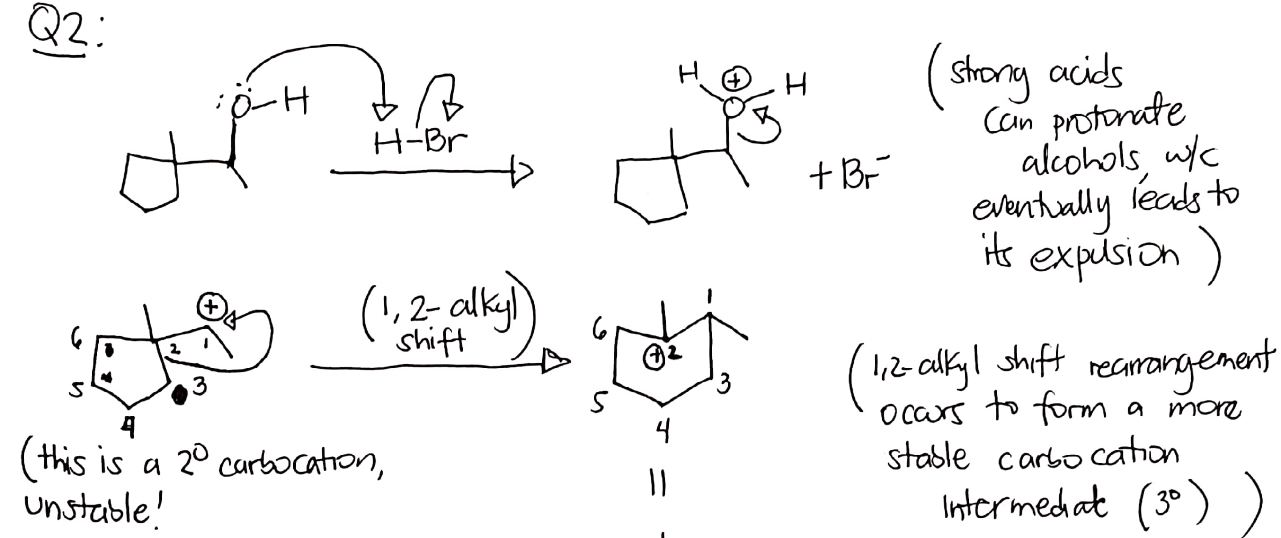 Q2:
:Ö-H
H-Br
H ⊕ H
O
+ Br⁻
(strong acids
can protonate
alcohols, w/c
eventually leads to
its expulsion)
6 5 4 3 2 1 ⊕
(1,2-alkyl
shift)
6 5 4 3 ⊕2 1
(this is a 2° carbocation,
unstable!
=
(1,2-alkyl shift rearrangement
occurs to form a more
stable carbocation
intermediate (3°) )